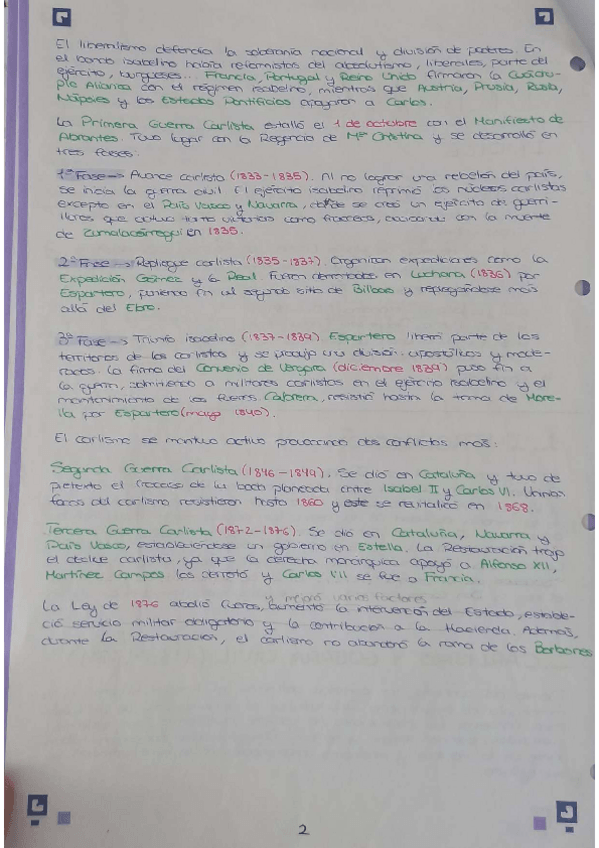 El liberalismo defendía la soberanía nacional y división de poderes. En
el bando isabelino había reformistas del absolutismo, liberales, parte del
ejército, burgueses... Francia, Portugal y Reino Unido firmaron la Cuádru-
ple Alianza con el régimen isabelino, mientras que Austria, Prusia, Rusia,
Nápoles y los Estados Pontificios apoyaron a Carlos.
La Primera Guerra Carlista estalló el 1 de octubre con el Manifiesto de
Abrantes. Tuvo lugar con la Regencia de Mª Cristina y se desarrolló en
tres fases:
1ª Fase -> Avance carlista (1833-1835). Al no lograr una rebelión del país,
se inicia la guerra civil. El ejército isabelino reprimió los núcleos carlistas
excepto en el País Vasco y Navarra, donde se creó un ejército de guerri-
lleros que tanto victorias como fracasos, con la muerte
de Zumalacárregui en 1835.
2ª Fase -> Repliegue carlista (1835-1837). Organizan expediciones como la
Expedición Gómez y la Real. Fueron derrotados en Luchana (1836) por
Espartero, poniendo fin al segundo sitio de Bilbao y replegándose más
allá del Ebro.
3ª Fase -> Triunfo isabelino (1837-1839) Espartero liberó parte de los
territorios de los carlistas y se produjo una división: apostólicos y mode-
rados. La firma del Convenio de Vergara (diciembre 1839) puso fin a
la guerra, admitiendo a militares carlistas en el ejército isabelino y el
mantenimiento de los fueros. Cabrera, resistió hasta la toma de More-
lla por Espartero (mayo 1840).
El carlismo se mantuvo activo provocando dos conflictos más:
Segunda Guerra Carlista (1846-1849). Se dió en Cataluña y tuvo de
pretexto el fracaso de la boda planeada entre Isabel II y Carlos VI. Unos
focos del carlismo resistieron hasta 1860 y este se revitalizó en 1868.
Tercera Guerra Carlista (1872-1876). Se dió en Cataluña, Navarra y
País Vasco, estableciéndose un gobierno en Estella. La Restauración trajo
el declive carlista, ya que la derecha monárquica apoyó a Alfonso XII,
Martínez Campos los derrotó y Carlos VII se fue a Francia.
y mejoró varios factores
La Ley de 1876 abolió fueros, aumentó la intervención del Estado, estable-
ció servicio militar obligatorio y la contribución a la Hacienda. Además,
durante la Restauración, el carlismo no abandonó la rama de los Borbones
2